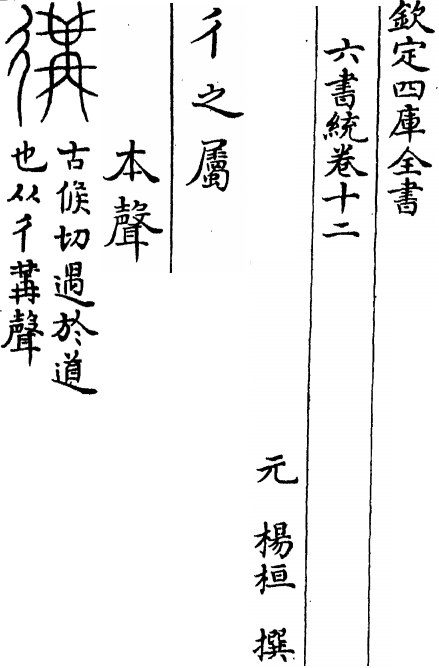 欽定四庫全書
六書統卷十二
元 楊桓 撰
彳之屬
本聲
古候切遇於道
也从彳冓聲